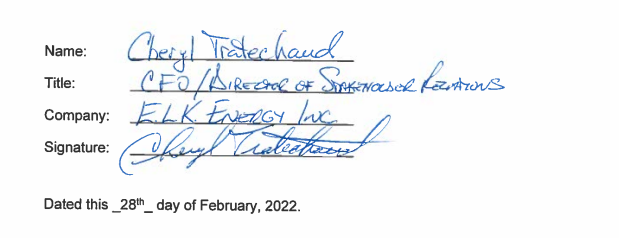 Name: Cheryl Tratechaud
Title: CFO/DIRECTOR OF STAKEHOLDER RELATIONS
Company: E.L.K. ENERGY INC
Signature: Cheryl Tratechaud
Dated this _28th_ day of February, 2022.